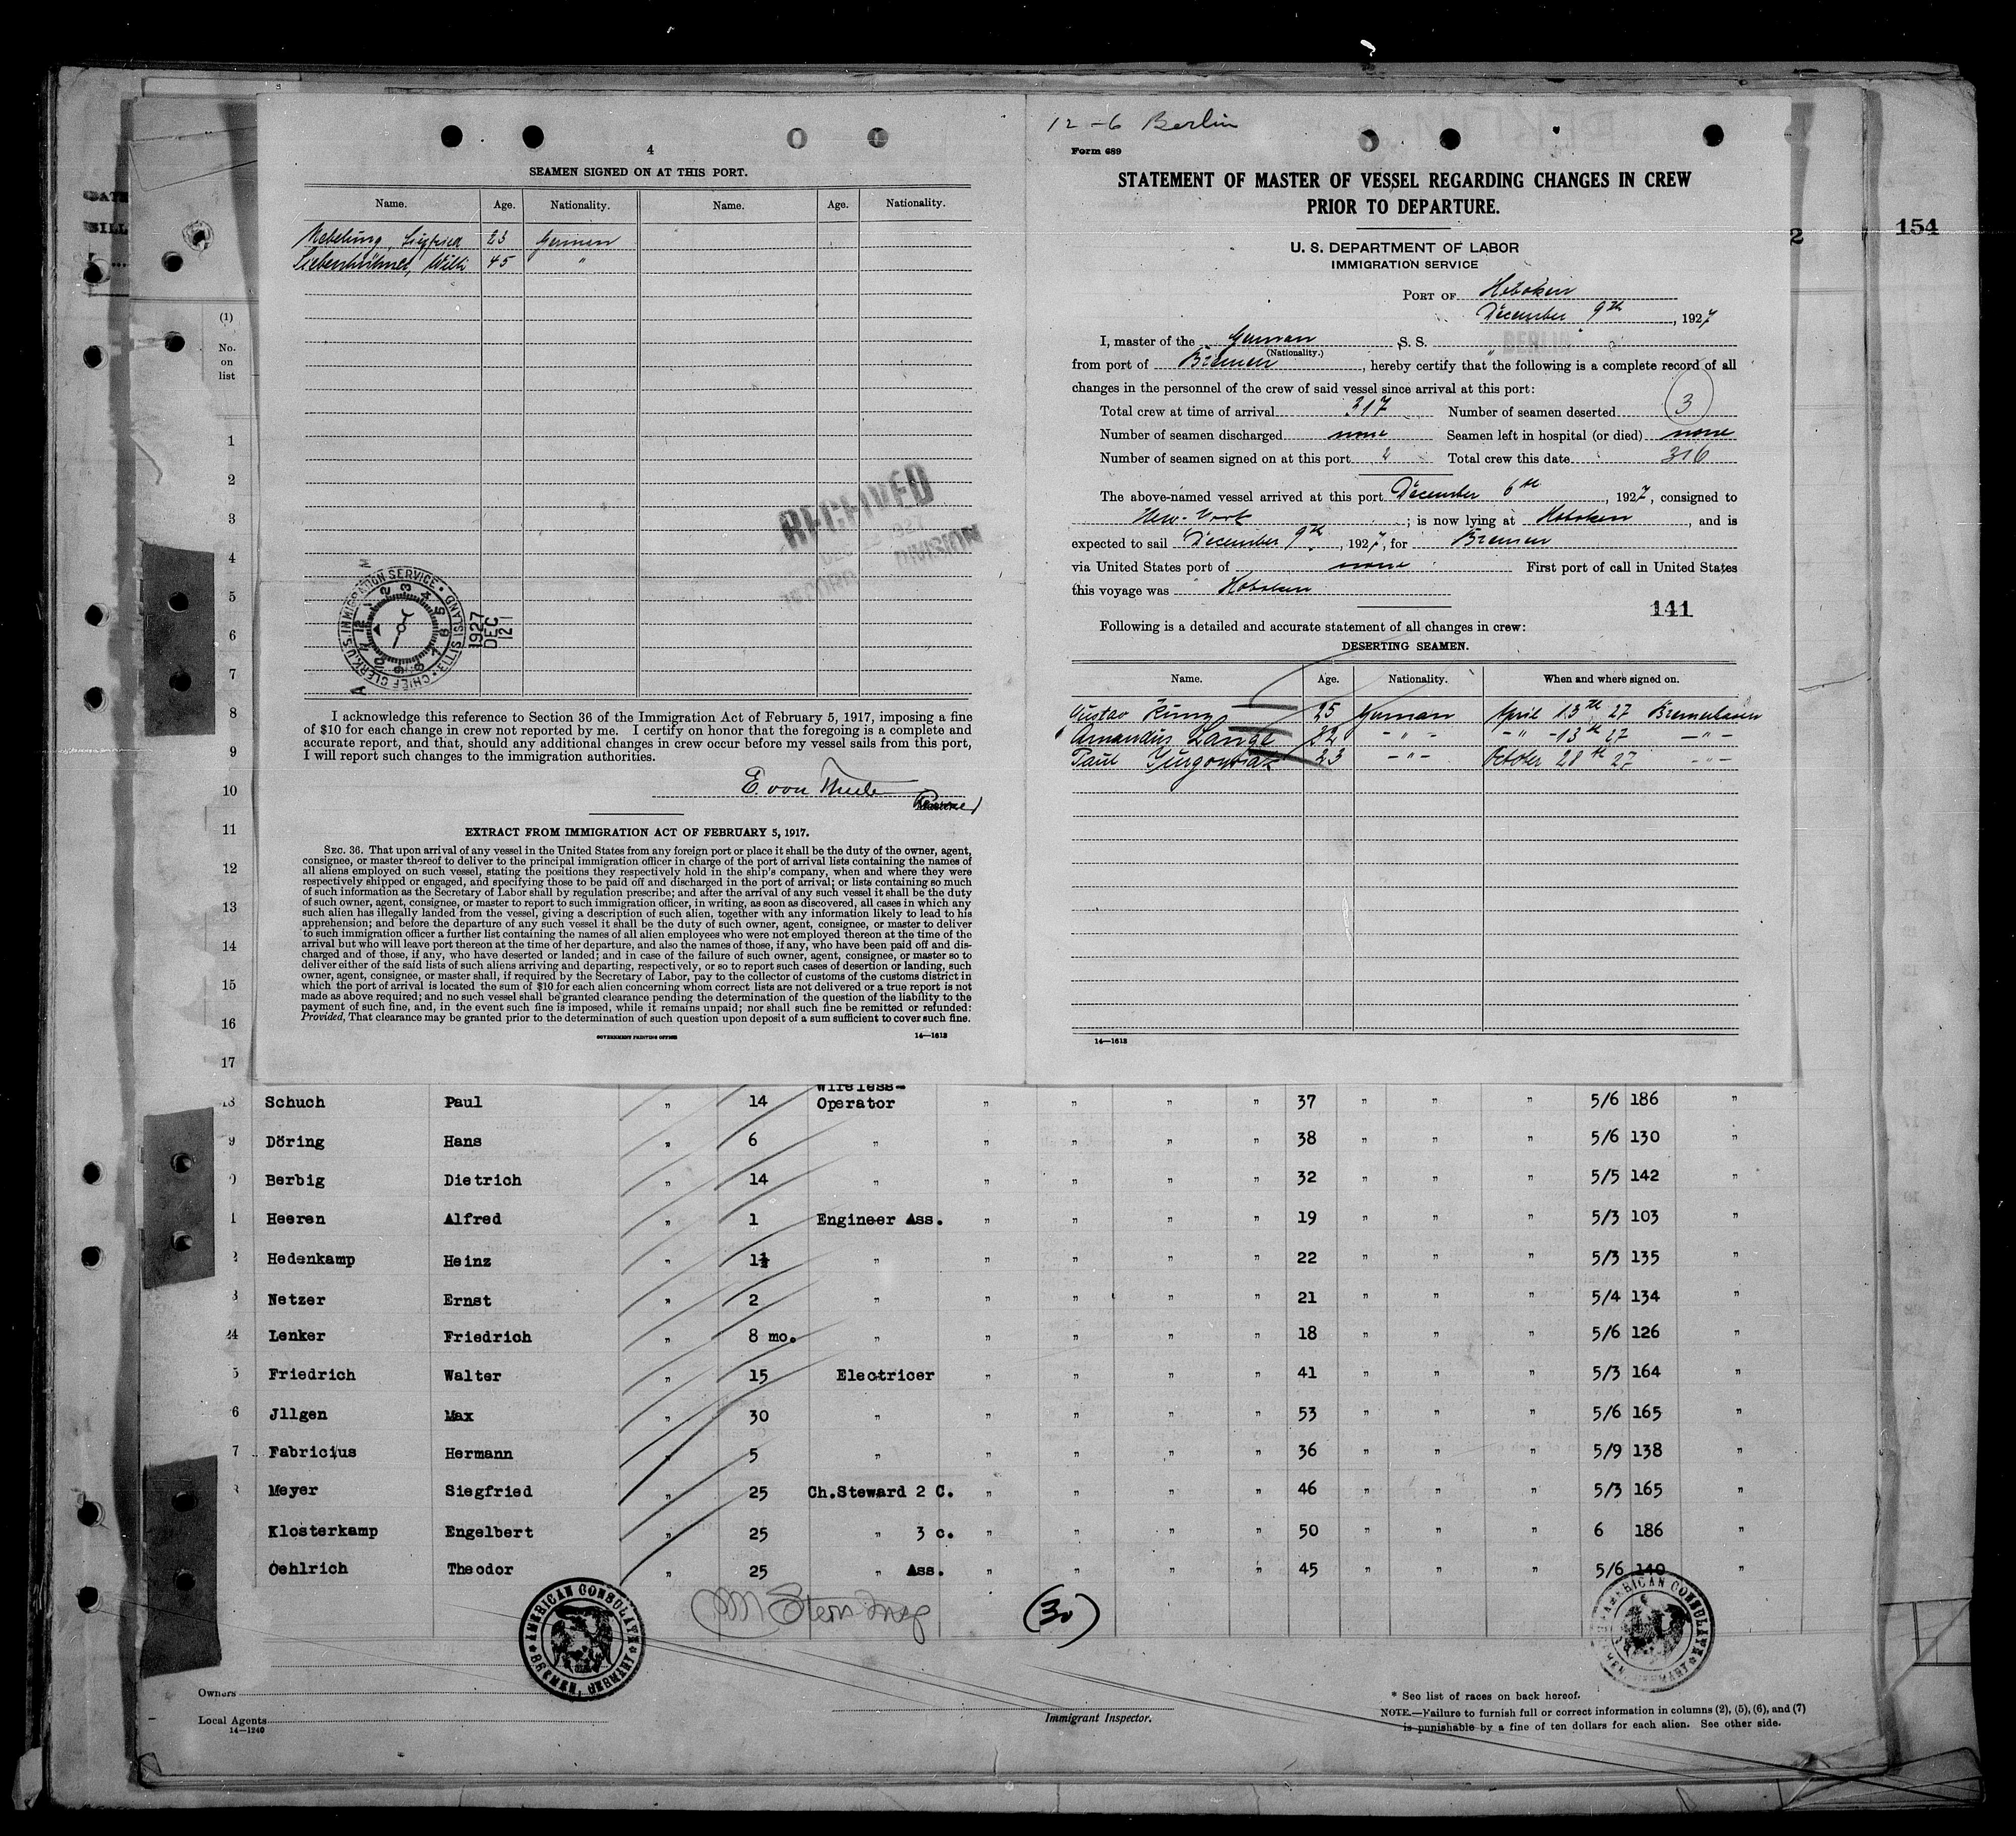 4
SEAMEN SIGNED ON AT THIS PORT.
Name. Age. Nationality. Name. Age. Nationality.
Nebelung, Siegfried 23 German
Siebenhühner, Willi 45 "
(1)
No.
on
list
1
2
3
4
5
6
7
8
9
10
11
12
13
14
15
16
17
RECEIVED
DIVISION
CHIEF CLERK U.S. IMMIGRATION SERVICE · ELLIS ISLAND
1927
DEC
12
I acknowledge this reference to Section 36 of the Immigration Act of February 5, 1917, imposing a fine
of $10 for each change in crew not reported by me. I certify on honor that the foregoing is a complete and
accurate report, and that, should any additional changes in crew occur before my vessel sails from this port,
I will report such changes to the immigration authorities.
E. von Thule
EXTRACT FROM IMMIGRATION ACT OF FEBRUARY 5, 1917.
SEC. 36. That upon arrival of any vessel in the United States from any foreign port or place it shall be the duty of the owner, agent,
consignee, or master thereof to deliver to the principal immigration officer in charge of the port of arrival lists containing the names of
all aliens employed on such vessel, stating the positions they respectively hold in the ship's company, when and where they were
respectively shipped or engaged, and specifying those to be paid off and discharged in the port of arrival; or lists containing so much
of such information as the Secretary of Labor shall by regulation prescribe; and after the arrival of any such vessel it shall be the duty
of such owner, agent, consignee, or master to report to such immigration officer, in writing, as soon as discovered, all cases in which any
such alien has illegally landed from the vessel, giving a description of such alien, together with any information likely to lead to his
apprehension; and before the departure of any such vessel it shall be the duty of such owner, agent, consignee, or master to deliver
to such immigration officer a further list containing the names of all alien employees who were not employed thereon at the time of the
arrival but who will leave port thereon at the time of her departure, and also the names of those, if any, who have been paid off and dis-
charged and of those, if any, who have deserted or landed; and in case of the failure of such owner, agent, consignee, or master so to
deliver either of the said lists of such aliens arriving and departing, respectively, or so to report such cases of desertion or landing, such
owner, agent, consignee, or master shall, if required by the Secretary of Labor, pay to the collector of customs of the customs district in
which the port of arrival is located the sum of $10 for each alien concerning whom correct lists are not delivered or a true report is not
made as above required; and no such vessel shall be granted clearance pending the determination of the question of the liability to the
payment of such fine, and, in the event such fine is imposed, while it remains unpaid; nor shall such fine be remitted or refunded:
Provided, That clearance may be granted prior to the determination of such question upon deposit of a sum sufficient to cover such fine.
GOVERNMENT PRINTING OFFICE 14—1613
12-6 Berlin
Form 689
STATEMENT OF MASTER OF VESSEL REGARDING CHANGES IN CREW
PRIOR TO DEPARTURE.
U. S. DEPARTMENT OF LABOR
IMMIGRATION SERVICE
2
154
PORT OF Hoboken
December 9th, 1927
I, master of the German S. S. "BERLIN"
(Nationality.)
from port of Bremen, hereby certify that the following is a complete record of all
changes in the personnel of the crew of said vessel since arrival at this port:
Total crew at time of arrival 317 Number of seamen deserted 3
Number of seamen discharged none Seamen left in hospital (or died) none
Number of seamen signed on at this port 2 Total crew this date 316
The above-named vessel arrived at this port December 6th, 1927, consigned to
New-York; is now lying at Hoboken, and is
expected to sail December 9th, 1927, for Bremen
via United States port of none First port of call in United States
this voyage was Hoboken
141
Following is a detailed and accurate statement of all changes in crew:
DESERTING SEAMEN.
Name. Age. Nationality. When and where signed on.
Gustav Kunz 25 German April 13th 27 Bremerhaven
Amandus Lange 22 - " - - " - 13th 27 - " -
Paul 23 - " - October 28th 27 - " -
14—1613
Wireless-
Schuch Paul " 14 Operator " " " " 37 " " " 5/6 186 "
9 Döring Hans " 6 " " " " " 38 " " " 5/6 130 "
Berbig Dietrich " 14 " " " " " 32 " " " 5/5 142 "
1 Heeren Alfred " 1 Engineer Ass. " " " " 19 " " " 5/3 103 "
2 Hedenkamp Heinz " 1½ " " " " " 22 " " " 5/3 135 "
3 Netzer Ernst " 2 " " " " " 21 " " " 5/4 134 "
24 Lenker Friedrich " 8 mo. " " " " " 18 " " " 5/6 126 "
5 Friedrich Walter " 15 Electricer " " " " 41 " " " 5/3 164 "
6 Jllgen Max " 30 " " " " " 53 " " " 5/6 165 "
7 Fabricius Hermann " 5 " " " " " 36 " " " 5/9 138 "
Meyer Siegfried " 25 Ch.Steward 2 C. " " " " 46 " " " 5/3 165 "
Klosterkamp Engelbert " 25 " 3 c. " " " " 50 " " " 6 186 "
Oehlrich Theodor " 25 " Ass. " " " " 45 " " " 5/6 140 "
AMERICAN CONSULATE BREMEN, GERMANY
M Stern Insp
(30)
AMERICAN CONSULATE
Owners
Local Agents
14—1240
Immigrant Inspector.
* See list of races on back hereof.
NOTE.—Failure to furnish full or correct information in columns (2), (5), (6), and (7)
is punishable by a fine of ten dollars for each alien. See other side.